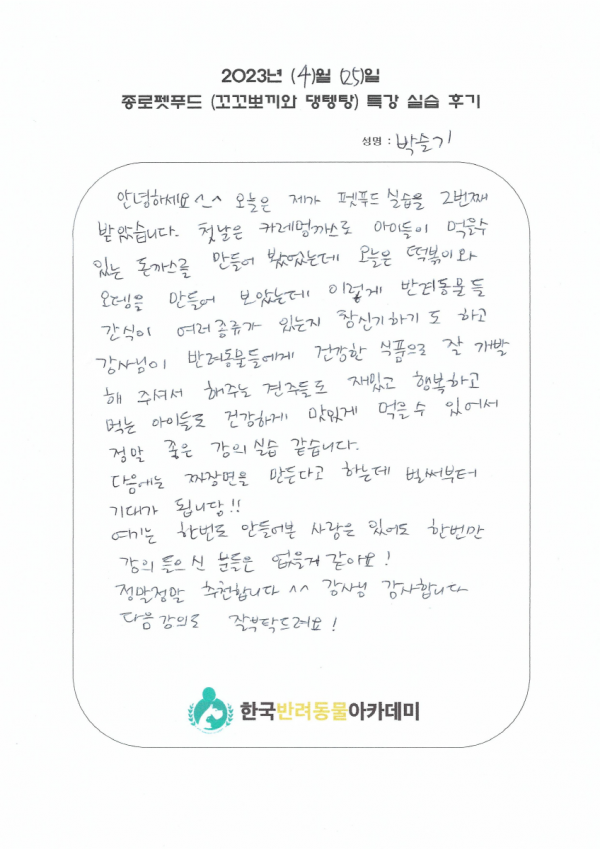 2023년 (4)월 (25)일
종로펫푸드 (꼬꼬뽀끼와 댕텡탕) 특강 실습 후기
성명 : 박슬기
안녕하세요^^ 오늘은 제가 펫푸드 실습을 2번째
받았습니다. 첫날은 카레멍까스로 아이들이 먹을수
있는 돈까스를 만들어 봤었는데 오늘은 떡볶이와
오뎅을 만들어 보았는데 이렇게 반려동물들
간식이 여러종류가 있는지 참신기하기도 하고
강사님이 반려동물들에게 건강한 식품으로 잘 개발
해 주셔서 해주는 견주들도 재밌고 행복하고
먹는 아이들도 건강하게 맛있게 먹을수 있어서
정말 좋은 강의실습 같습니다.
다음에는 짜장면을 만든다고 하는데 벌써부터
기대가 됩니당!!
여기는 한번도 안들어본 사람은 있어도 한번만
강의 들으신 분들은 없을게 같아요!
정말정말 추천합니다 ^^ 강사님 감사합니다
다음강의도 잘부탁드려요!
한국반려동물아카데미